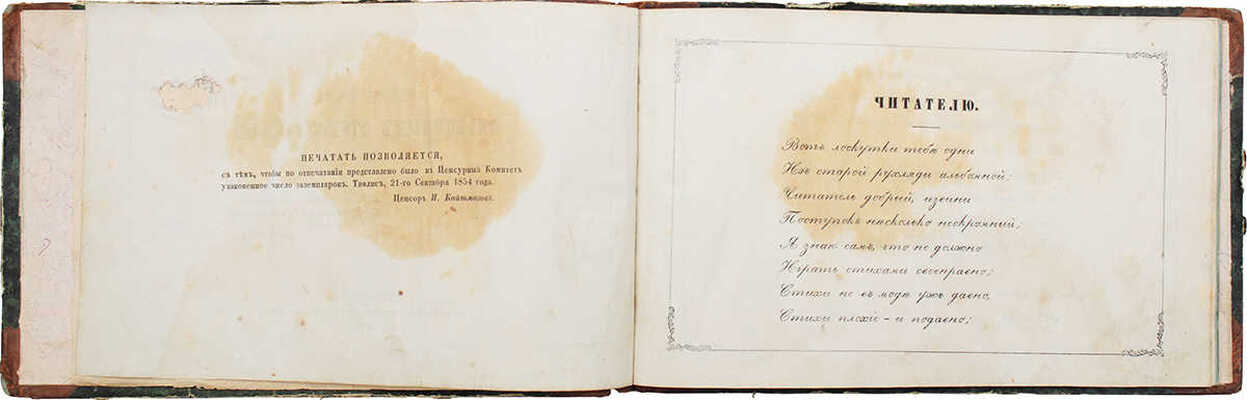 ПЕЧАТАТЬ ПОЗВОЛЯЕТСЯ,
съ тѣмъ, чтобы по отпечатаніи представлено было въ Ценсурный Комитетъ
узаконенное число экземпляровъ. Тифлисъ, 21-го Сентября 1854 года.
Ценсоръ И. Кайтмазовъ.
ЧИТАТЕЛЮ.
Вотъ лоскутки тебѣ одни
Изъ старой рухляди альбомной;
Читатель добрый, извини
Поступокъ нѣсколько нескромный;
Я знаю самъ, что не должно
Играть стихами своенравно;
Стихи не въ модѣ ужъ давно,
Стихи плохіе – и подавно;